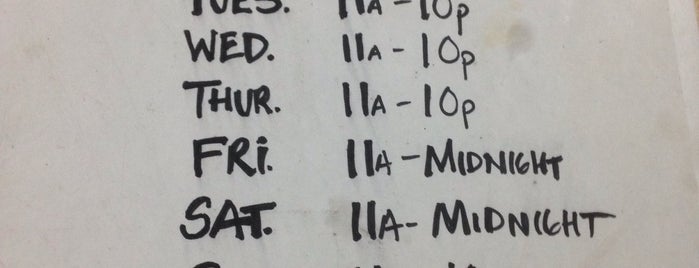 TUES. 11A-10p
WED. 11A-10p
THUR. 11A-10p
FRi. 11A-MIDNIGHT
SAT. 11A-MIDNIGHT